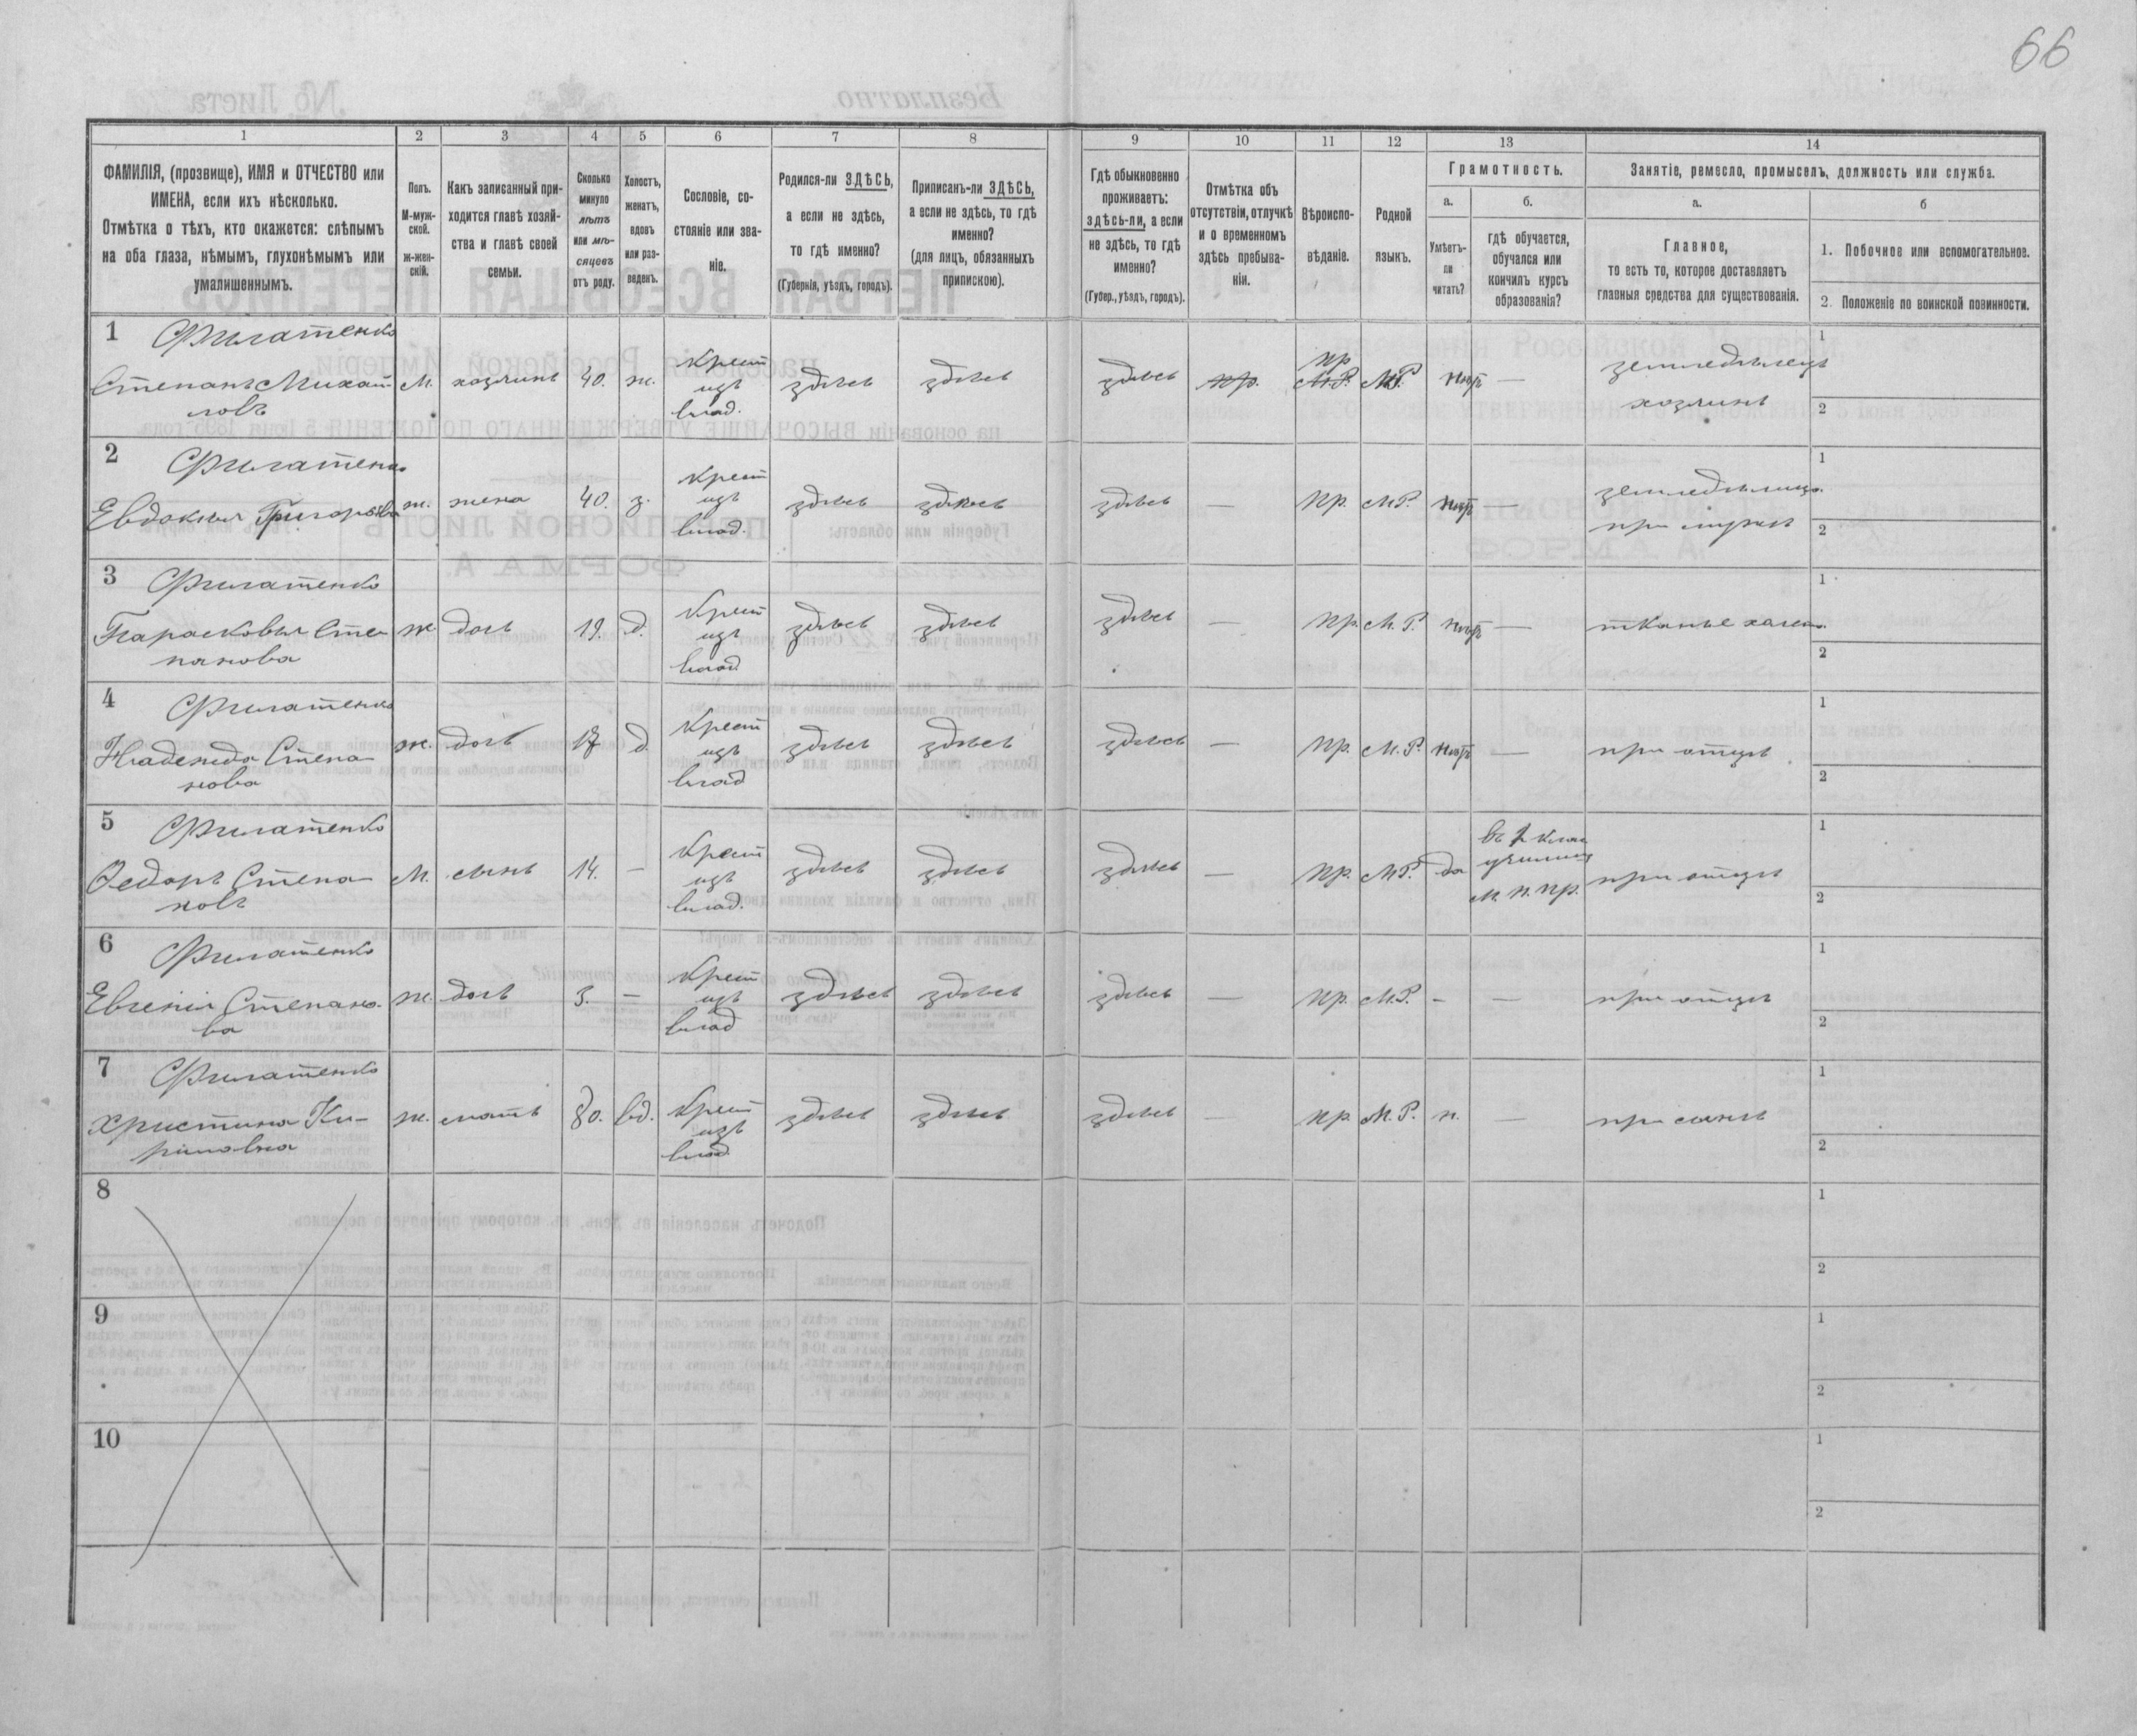 66
1 2 3 4 5 6 7 8 9 10 11 12 13 14
ФАМИЛІЯ, (прозвище), ИМЯ и ОТЧЕСТВО или
ИМЕНА, если ихъ нѣсколько.
Отмѣтка о тѣхъ, кто окажется: слѣпымъ
на оба глаза, нѣмымъ, глухонѣмымъ или
умалишеннымъ.
Полъ.
М-муж-
ской.
ж-жен-
скій.
Какъ записанный при-
ходится главѣ хозяй-
ства и главѣ своей
семьи.
Сколько
минуло
лѣтъ
или мѣ-
сяцевъ
отъ роду.
Холостъ,
женатъ,
вдовъ
или раз-
веденъ.
Сословіе, со-
стояніе или зва-
ніе.
Родился-ли ЗДѢСЬ,
а если не здѣсь,
то гдѣ именно?
(Губернія, уѣздъ, городъ).
Приписанъ-ли ЗДѢСЬ,
а если не здѣсь, то гдѣ
именно?
(для лицъ, обязанныхъ
припискою).
Гдѣ обыкновенно
проживаетъ:
здѣсь-ли, а если
не здѣсь, то гдѣ
именно?
(Губер., уѣздъ, городъ).
Отмѣтка объ
отсутствіи, отлучкѣ
и о временномъ
здѣсь пребыва-
ніи.
Вѣроиспо-
вѣданіе.
Родной
языкъ.
Грамотность.
а.
Умѣетъ-
ли
читать?
б.
гдѣ обучается,
обучался или
кончилъ курсъ
образованія?
Занятіе, ремесло, промыселъ, должность или служба.
а.
Главное,
то есть то, которое доставляетъ
главныя средства для существованія.
б
1. Побочное или вспомогательное.
2. Положеніе по воинской повинности.
1 Филатенко
Степанъ Михай
ловъ
М. хозяинъ 40. ж.
Крест
изъ
влад.
здѣсь здѣсь здѣсь пр.
пр
М.Р. М.Р. —
земледѣлецъ
хозяинъ
1
2
2 Филатенко
Евдокия Григорьева
ж. жена 40. з.
Крест
изъ
влад.
здѣсь здѣсь здѣсь — пр. М.Р. —
при мужѣ
1
2
3 Филатенко
Парасковья Сте
панова
ж. дочь 19. д.
Крест
изъ
влад
здѣсь здѣсь здѣсь — пр. М.Р. —
тканье
1
2
4 Филатенко
Надежда Степа
нова
ж. дочь 17 д.
Крест
изъ
влад
здѣсь здѣсь здѣсь — пр. М.Р. —
при отцѣ
1
2
5 Филатенко
Ѳедоръ Степа
новъ
М. сынъ 14. —
Крест
изъ
влад.
здѣсь здѣсь здѣсь — пр. М.Р. да
при отцѣ
1
2
6 Филатенко
Евгенія Степано
ва
ж. дочь 3. —
Крест
изъ
влад
здѣсь здѣсь здѣсь — пр. М.Р. - —
при отцѣ
1
2
7 Филатенко
Христина Ки-
риловна
ж. мать 80. вд.
Крест
изъ
влад
здѣсь здѣсь здѣсь — пр. М.Р. н. —
при сынѣ
1
2
8
1
2
9
1
2
10
1
2